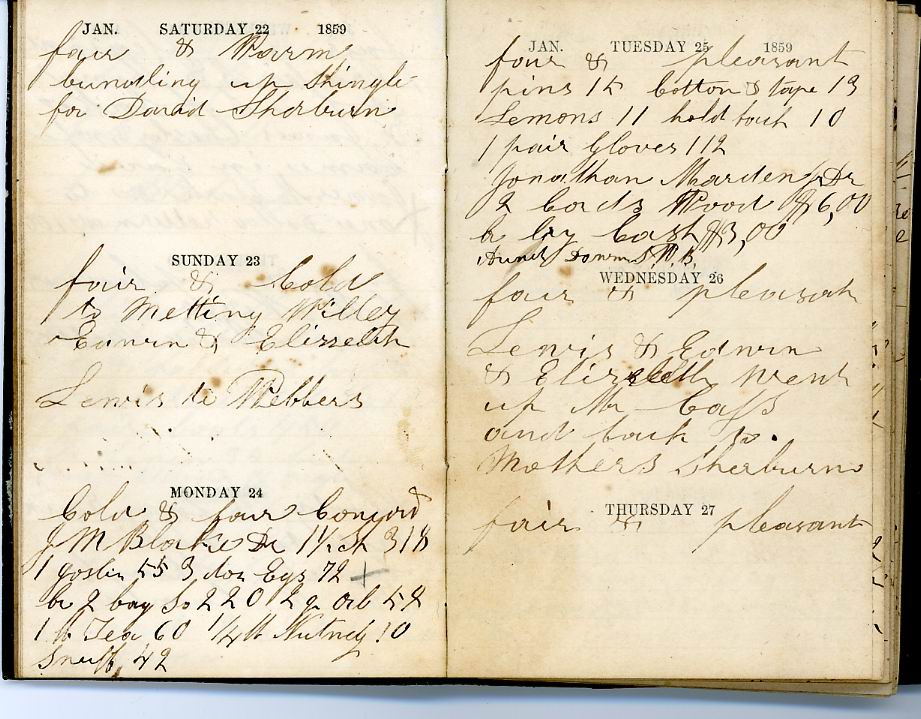 JAN. SATURDAY 22 1859
fair & Warm
bundling up Shingle
for David Sherburn
SUNDAY 23
fair & Cold
to Metting Willey
Edwin & Elizebeth
Lewis to Webbers
MONDAY 24
Cold & fair Concord
J M Blake Dr 318
1 goslin 55 3 doz Egs 72
2 bag So 2 20 12
1 lb Tea 60 1/4 lb Nutmeg 10
Snuff 42
JAN. TUESDAY 25 1859
fair & pleasant
pins 15 Cotton & tape 13
Lemons 11 10
1 pair Gloves 112
Jonathan Marden Dr
2 Cords Wood $6,00
by Cash $3,00
WEDNESDAY 26
fair & pleasant
Lewis & Edwin
& Elizebeth went
up Mr Cass
and back to
Mothers Sherburns
THURSDAY 27
fair & pleasant